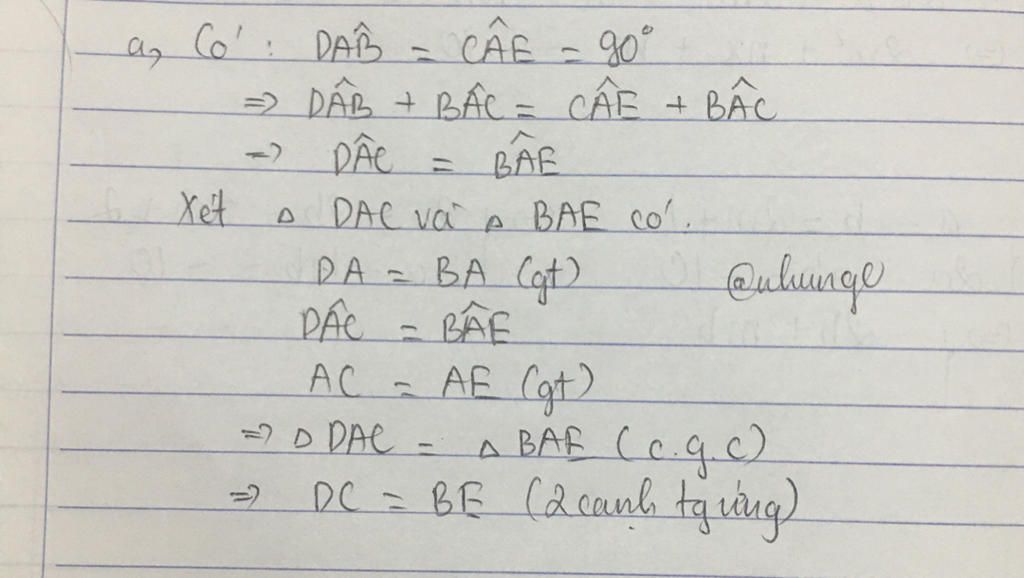 a, Có: DAB̂ = CÂE = 90°
=> DÂB + BÂC = CÂE + BÂC
=> DÂC = BÂE
Xét △ DAC và △ BAE có:
DA = BA (gt) @nhunge
DÂC = BÂE
AC = AE (gt)
=> △ DAC = △ BAE (c.g.c)
=> DC = BE (2 cạnh tg ứng)